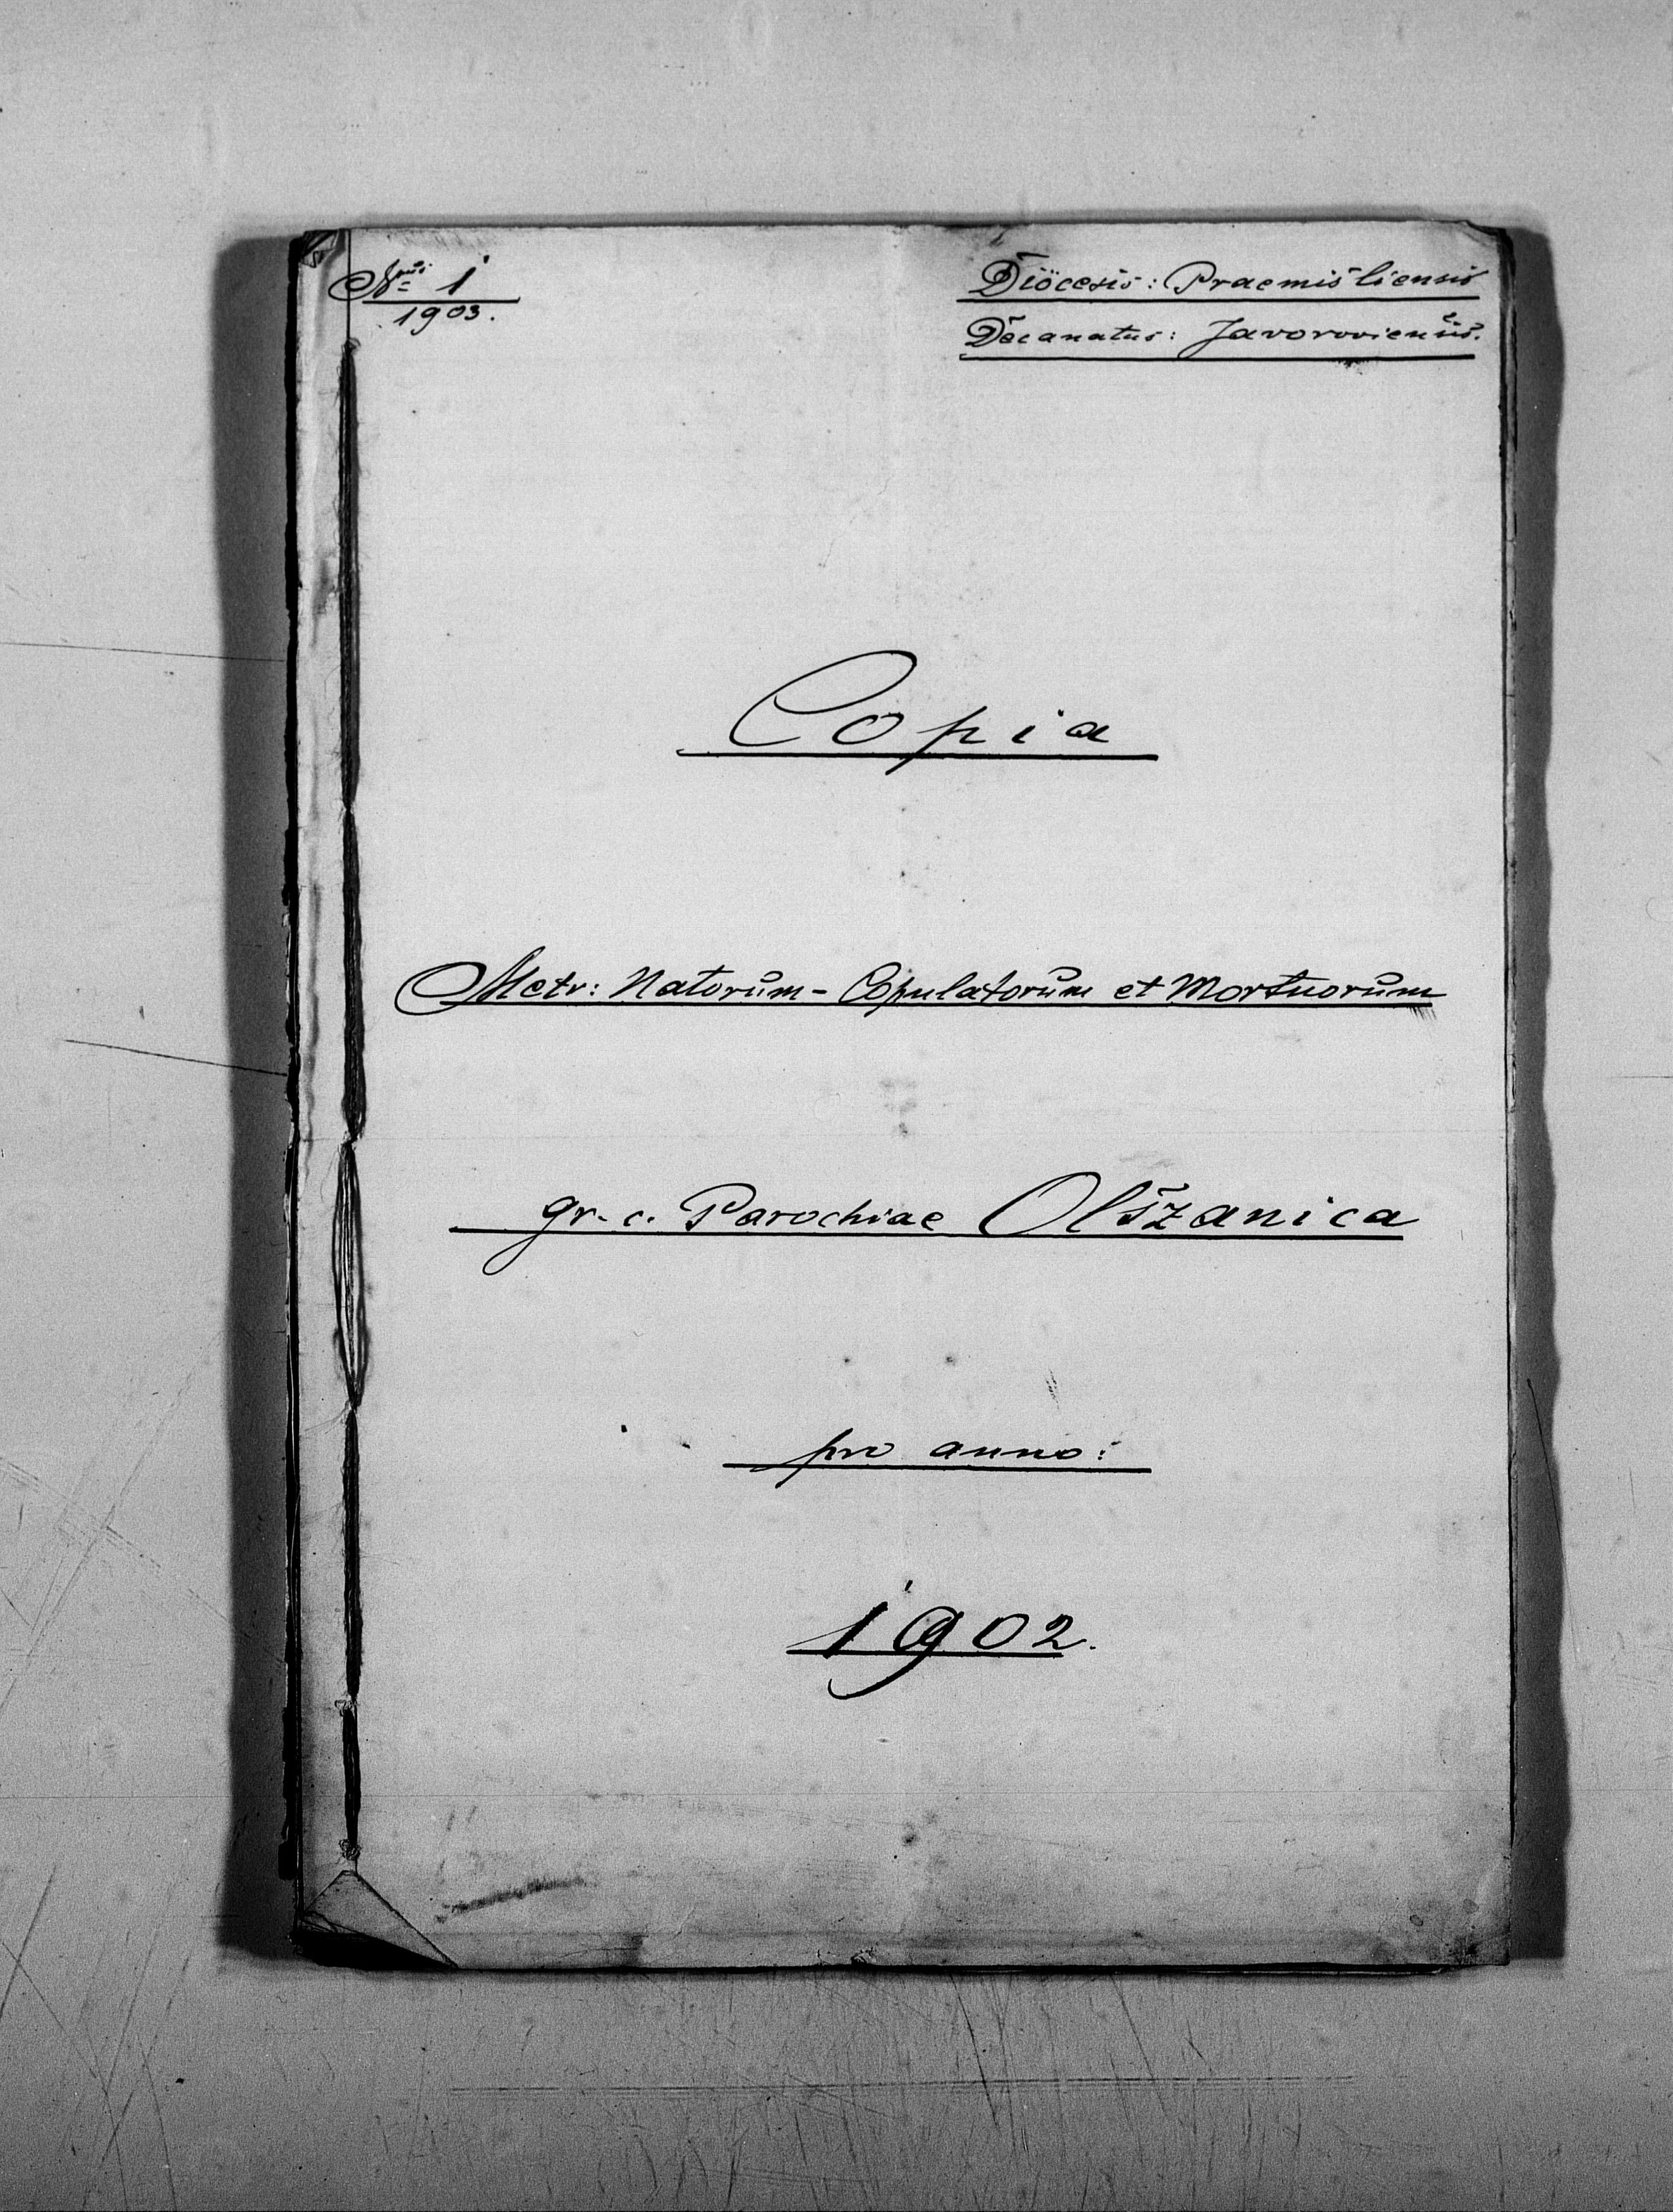 Nrus 1
1903.
Diöcesis: Praemisliensis
Decanatus: Javoroviensis.
Copia
Metr: Natorum - Copulatorum et Mortuorum
gr. c. Parochiae Olszanica
pro anno:
1902.